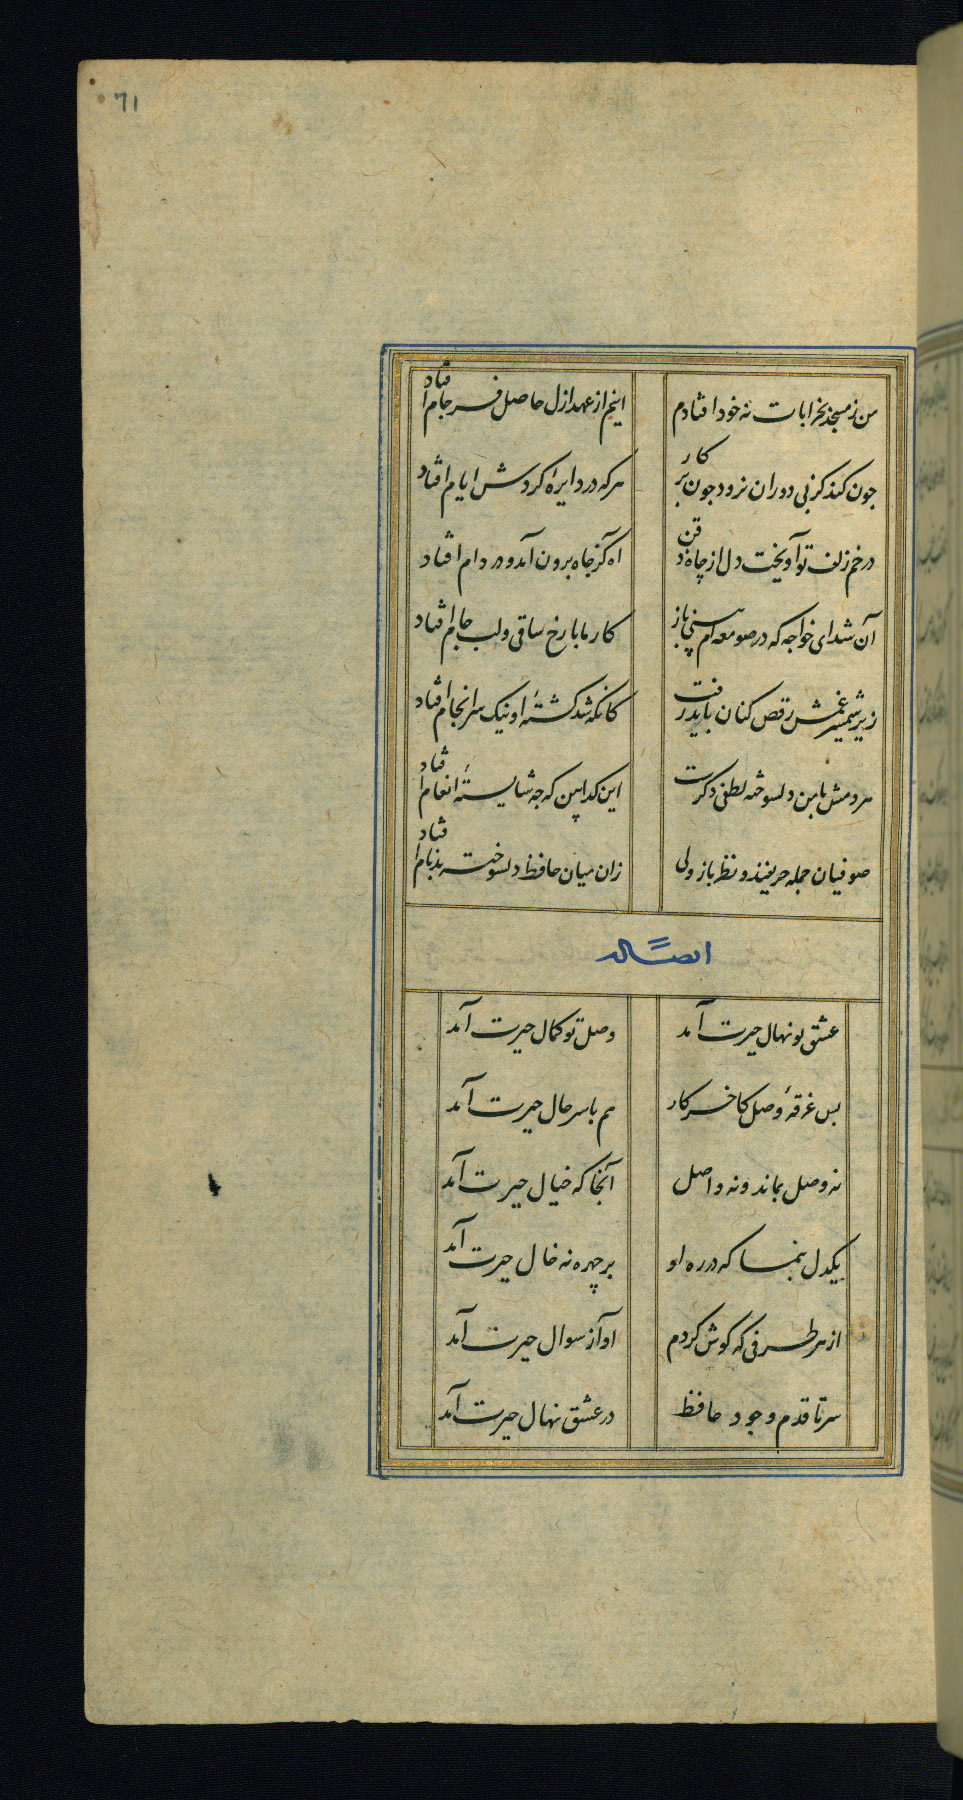 71
من ز مسجد بخرابات نه خود افتادم
اینم از عهد ازل حاصل فرجام افتاد
چون کند کز پی دوران نرود چون پرکار
هر که در دایرهٔ کردش ایام افتاد
در خم زلف تو آویخت دل از چاه ذقن
اه کز جاه برون آمد و در دام افتاد
آن شد ای خواجه که در صومعه ام بینی باز
کار ما با رخ ساقی و لب جام افتاد
زیر شمشیر غمش رقص کنان باید رفت
کانکه شد کشتهٔ او نیک سرانجام افتاد
هر دمش با من دلسوخته لطفی دکرست
این کدا بین که جه شایستهٔ انعام افتاد
صوفیان جمله حریفند و نظرباز ولی
زان میان حافظ دلسوخته بدنام افتاد
ایضاً له
عشق تو نهال حیرت آمد
وصل تو کمال حیرت آمد
بس غرقهٔ وصل کاخر کار
هم با سر حال حیرت آمد
نه وصل بماند و نه واصل
آنجا که خیال حیرت آمد
یکدل بنما که در ره او
بر چهره نه خال حیرت آمد
از هر طرفی که کوش کردم
اواز سوال حیرت آمد
سر تا قدم وجود حافظ
در عشق نهال حیرت آمد